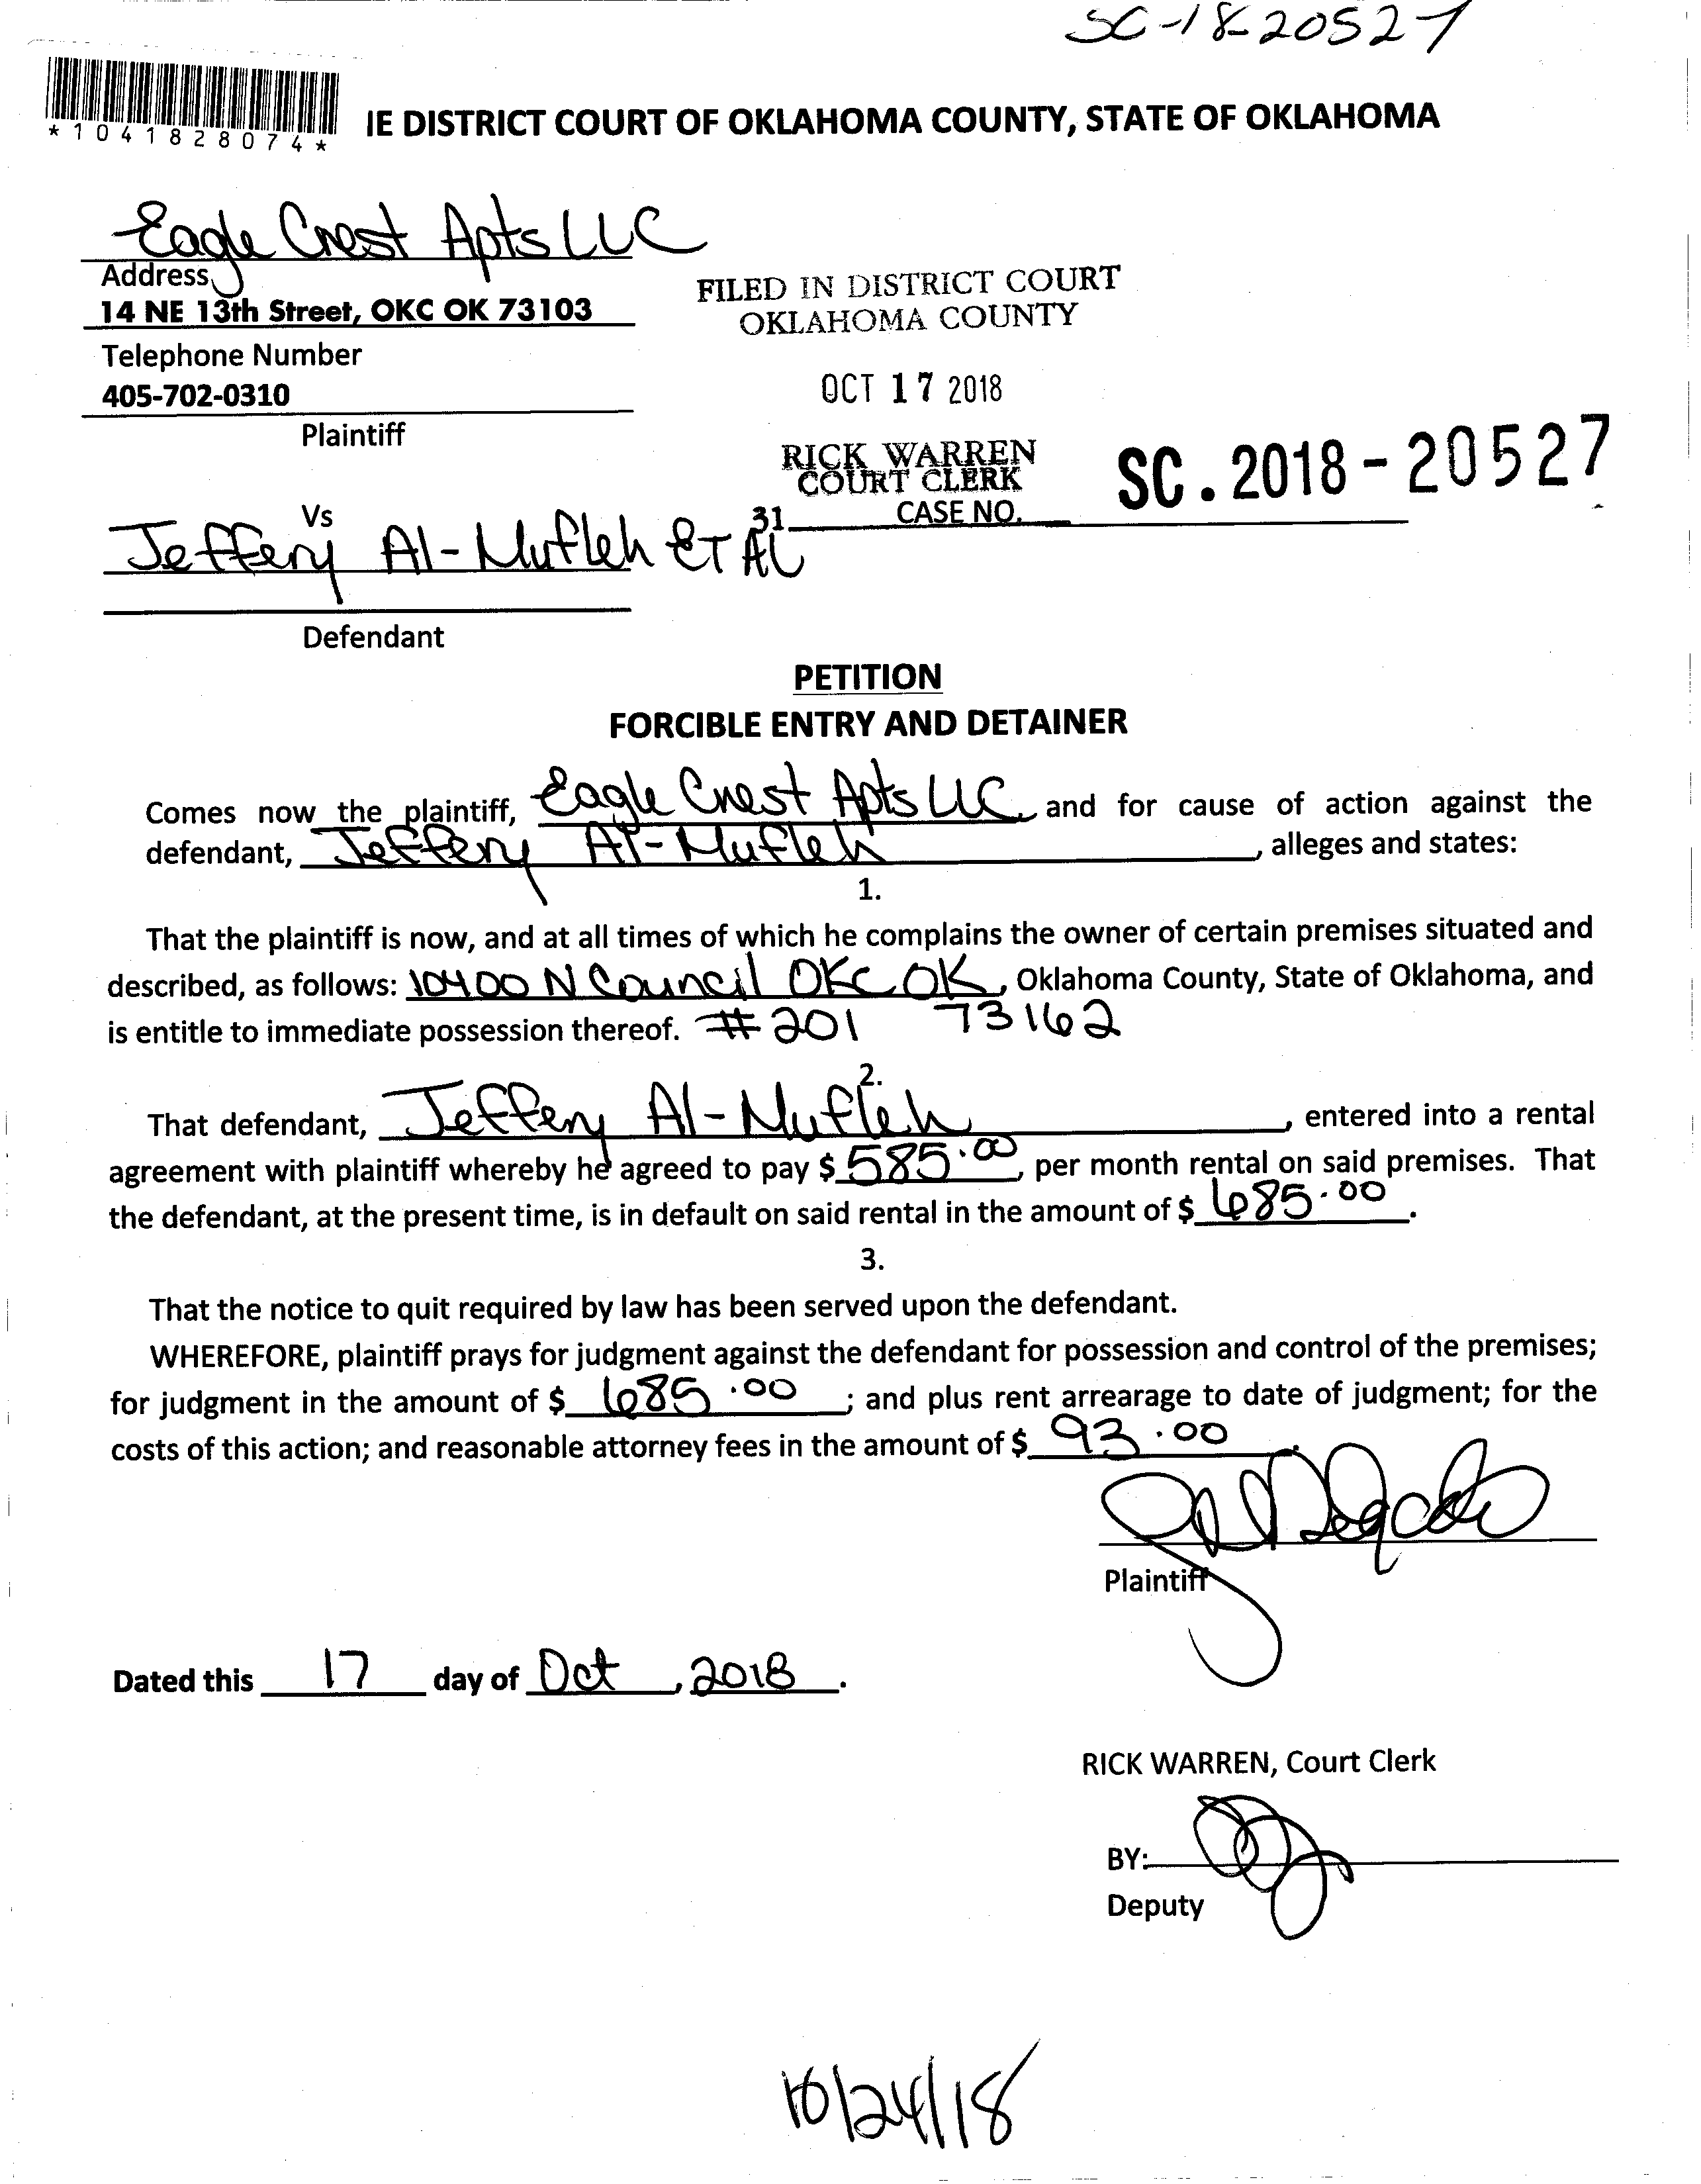 SC-18-20527
*1041828074*
IE DISTRICT COURT OF OKLAHOMA COUNTY, STATE OF OKLAHOMA
Eagle Crest Apts LLC
Address
14 NE 13th Street, OKC OK 73103
Telephone Number
405-702-0310
Plaintiff
FILED IN DISTRICT COURT
OKLAHOMA COUNTY
OCT 17 2018
RICK WARREN
COURT CLERK
31
CASE NO.
SC.2018-20527
Vs
Jeffery Al-Mufleh ET AL
Defendant
PETITION
FORCIBLE ENTRY AND DETAINER
Comes now the plaintiff, Eagle Crest Apts LLC, and for cause of action against the
defendant, Jeffery Al-Mufleh, alleges and states:
1.
That the plaintiff is now, and at all times of which he complains the owner of certain premises situated and
described, as follows: 10400 N Council OKC OK, Oklahoma County, State of Oklahoma, and
is entitle to immediate possession thereof. #201 73162
2.
That defendant, Jeffery Al-Mufleh, entered into a rental
agreement with plaintiff whereby he agreed to pay $ 585.00, per month rental on said premises. That
the defendant, at the present time, is in default on said rental in the amount of $ 685.00.
3.
That the notice to quit required by law has been served upon the defendant.
WHEREFORE, plaintiff prays for judgment against the defendant for possession and control of the premises;
for judgment in the amount of $ 685.00; and plus rent arrearage to date of judgment; for the
costs of this action; and reasonable attorney fees in the amount of $ 93.00.
Plaintiff
Dated this 17 day of Oct, 2018.
RICK WARREN, Court Clerk
BY:
Deputy
10/24/18